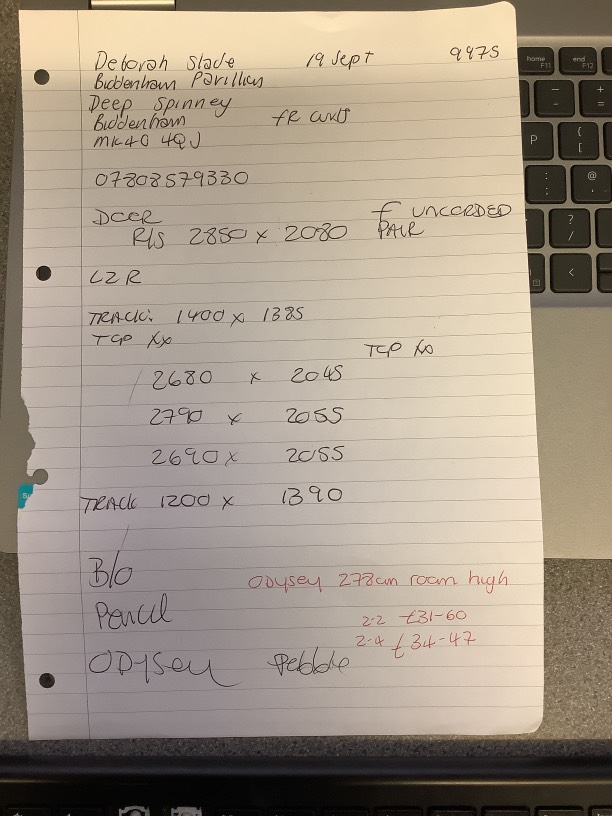 Deborah Slade 19 Sept 9975
Biddenham Pavillion
Deep Spinney
Biddenham
MK40 4QJ
07808579330
DOOR £ UNCORDED
R/S 2850 x 2080 PAIR
LZR
TRACK: 1400 x 1385
TOP
TOP
2680 x 2045
2790 x 2055
2690 x 2055
TRACK 1200 x 1390
B/O
Odysey 278cm room high
Pencil
2-2 £31-60
2-4 £34-47
ODYSEY Pebble
home
F11
end
F12
P